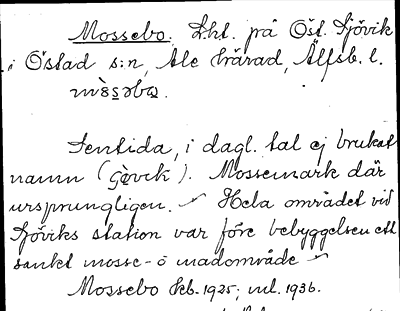 Mossebo. Lht. på Öst. Sjövik
i Östad s:n, Ale härad, Älfsb. l.
Sentida, i dagl. tal ej brukat
namn (Sjövik). Mossemark där
ursprungligen. Hela området vid
Sjöviks station var före bebyggelsen ett
sankt mosse- o madområde
Mossebo Feb. 1925; ml. 1936.